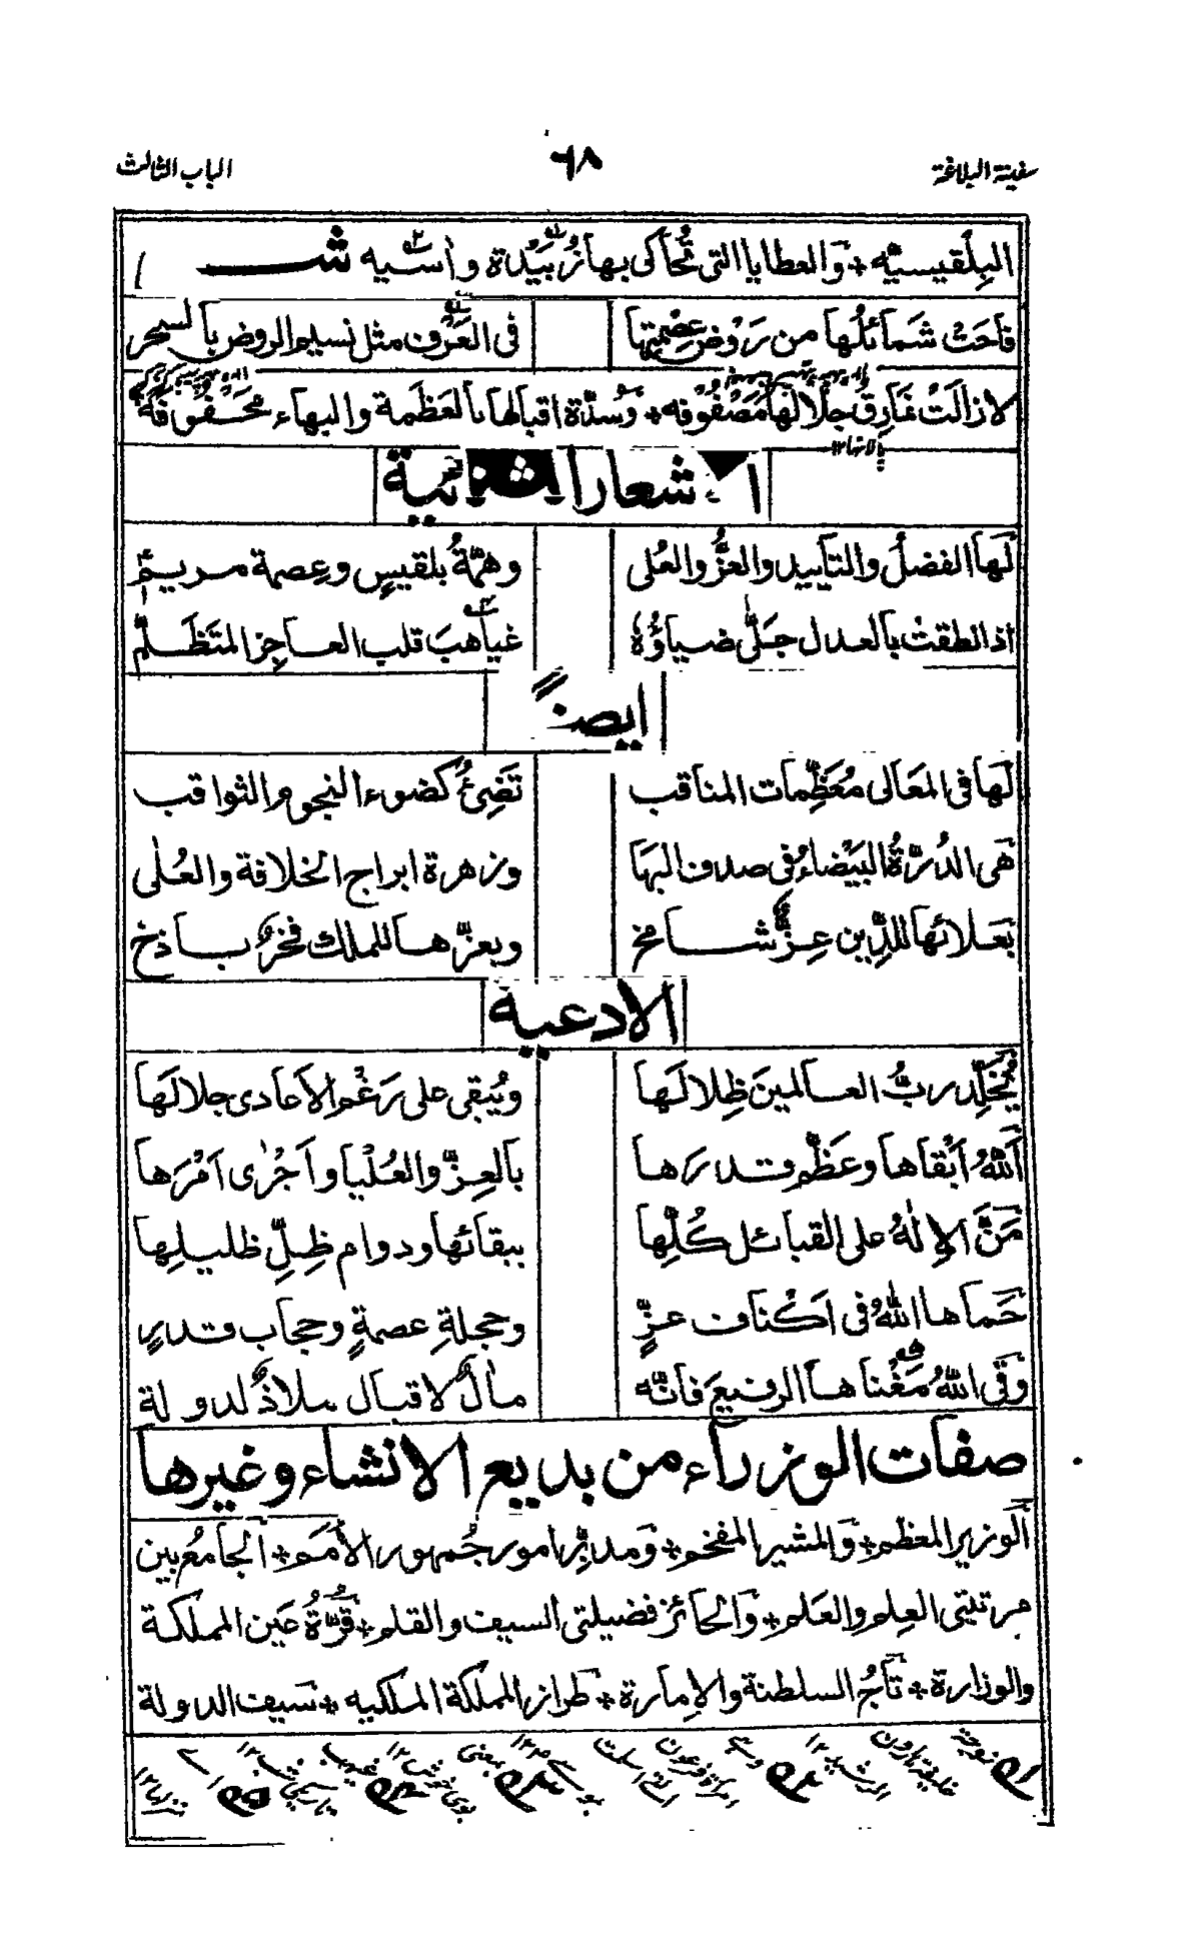 سفينة البلاغة ٦٨ الباب الثالث
البِلقيسيّه + وَالعطايا التى تُحاكى بها زُبَيْدة واٰسيه شــ
فاحَتْ شَمائلُها من رَوْضِ عِصْمتِها فى العَرْف مثل نسيم الروض بالسحر
لا زالَتْ نمَارِق جلالها مَصْفُوفه + وَسُدّة اقبالها بالعَظَمة والبهاء محَفُوفَه
الاشعار الثنائية
لَها الفضلُ والتأييد والعزُّ والعُلى وهمّةُ بلقيسٍ وعِصمة مريم
اذا نطقتْ بالعدل جَلّى ضياؤهُ غياهبَ قلب العاجز المتَظَلِّم
ايضاً
لَها فى المَعالى مُعَظّمات المناقب تَضِئُ كضوء النجوم الثواقب
هى الدُرّةُ البَيْضاءُ فى صدف البها وزهرة ابراج الخلافة والعُلٰى
بَعلائها للدِّين عِزٌّ شامخ وبعزّها للملك فخرٌ باذخ
الادعية
يُخلِّد ربُّ العالمينَ ظِلالَها ويُبقى على رَغْم الأعادى جلالَها
اَللّٰهُ اَبْقاها وعَظّم قدرَها بالعِزّ والعُلْيا واَجْرٰى اَمْرَها
مَنَّ الإلٰهُ على القبائل كُلِّها ببقائها ودوام ظِلِّ ظليلِها
حَماها اللّٰهُ فى اَكْناف عزٍّ وحجلةِ عصمةٍ وحجاب قدرٍ
وَقَى اللّٰهُ مَغْناها الرفيعَ فانّه مآلٌ لاقبال ملاذٌ لدولة
صفات الوزراء من بديع الانشاء وغيرها
اَلوزير المعظم + وَالمشير المفخم + وَمدبّر امور جُمهور الأُمَم + اَلجامعُ بين
مرتبتى العِلم والعَلم + وَالحائز فضيلتى السيف والقلم + قُرّةُ عَين المملكة
والوزارة + تَاجُ السلطنة والإمارة + طَراز المملكة الملكيه + سَيف الدولة